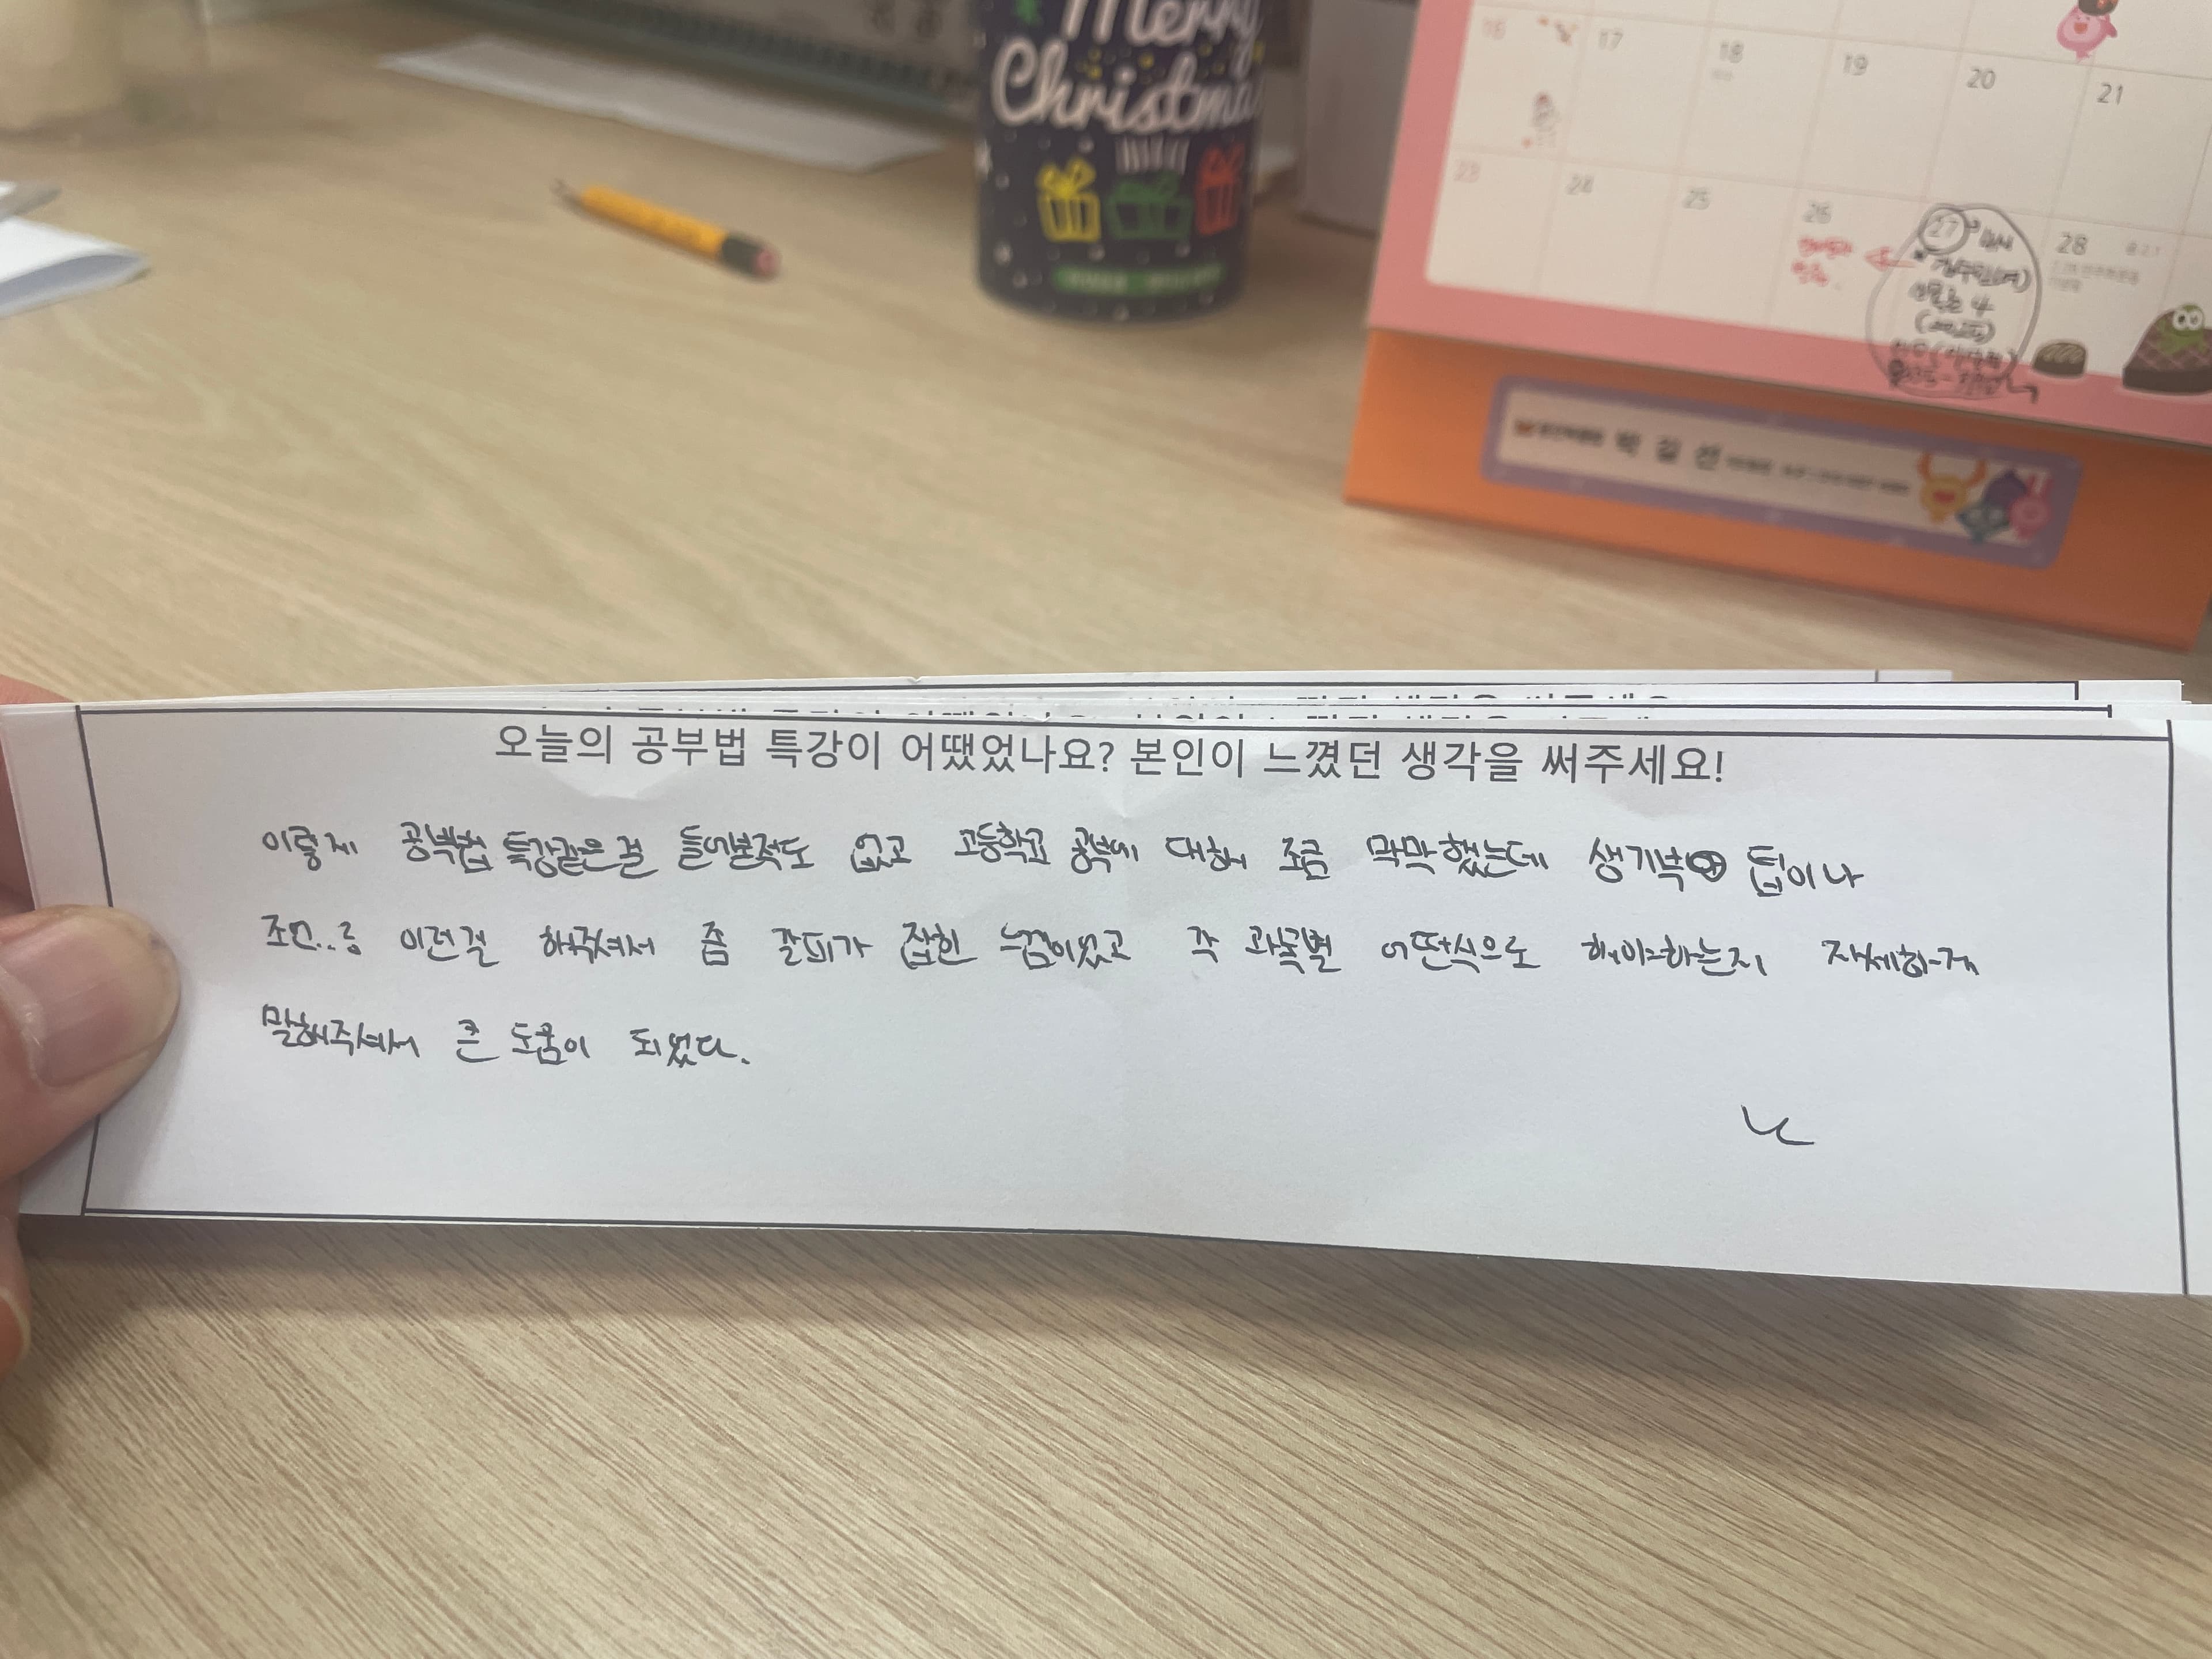 Merry
Christma
16
17
18
19
20
21
23
24
25
26
27
28
박길선
오늘의 공부법 특강이 어땠었나요? 본인이 느꼈던 생각을 써주세요!
이렇게 공부법 특강같은걸 들어본적도 없고 고등학교 공부에 대해 조금 막막했는데 생기부 팁이나
조언..? 이런걸 해주셔서 좀 갈피가 잡힌 느낌이었고 각 과목별 어떤식으로 해야하는지 자세하게
말해주셔서 큰 도움이 되었다.